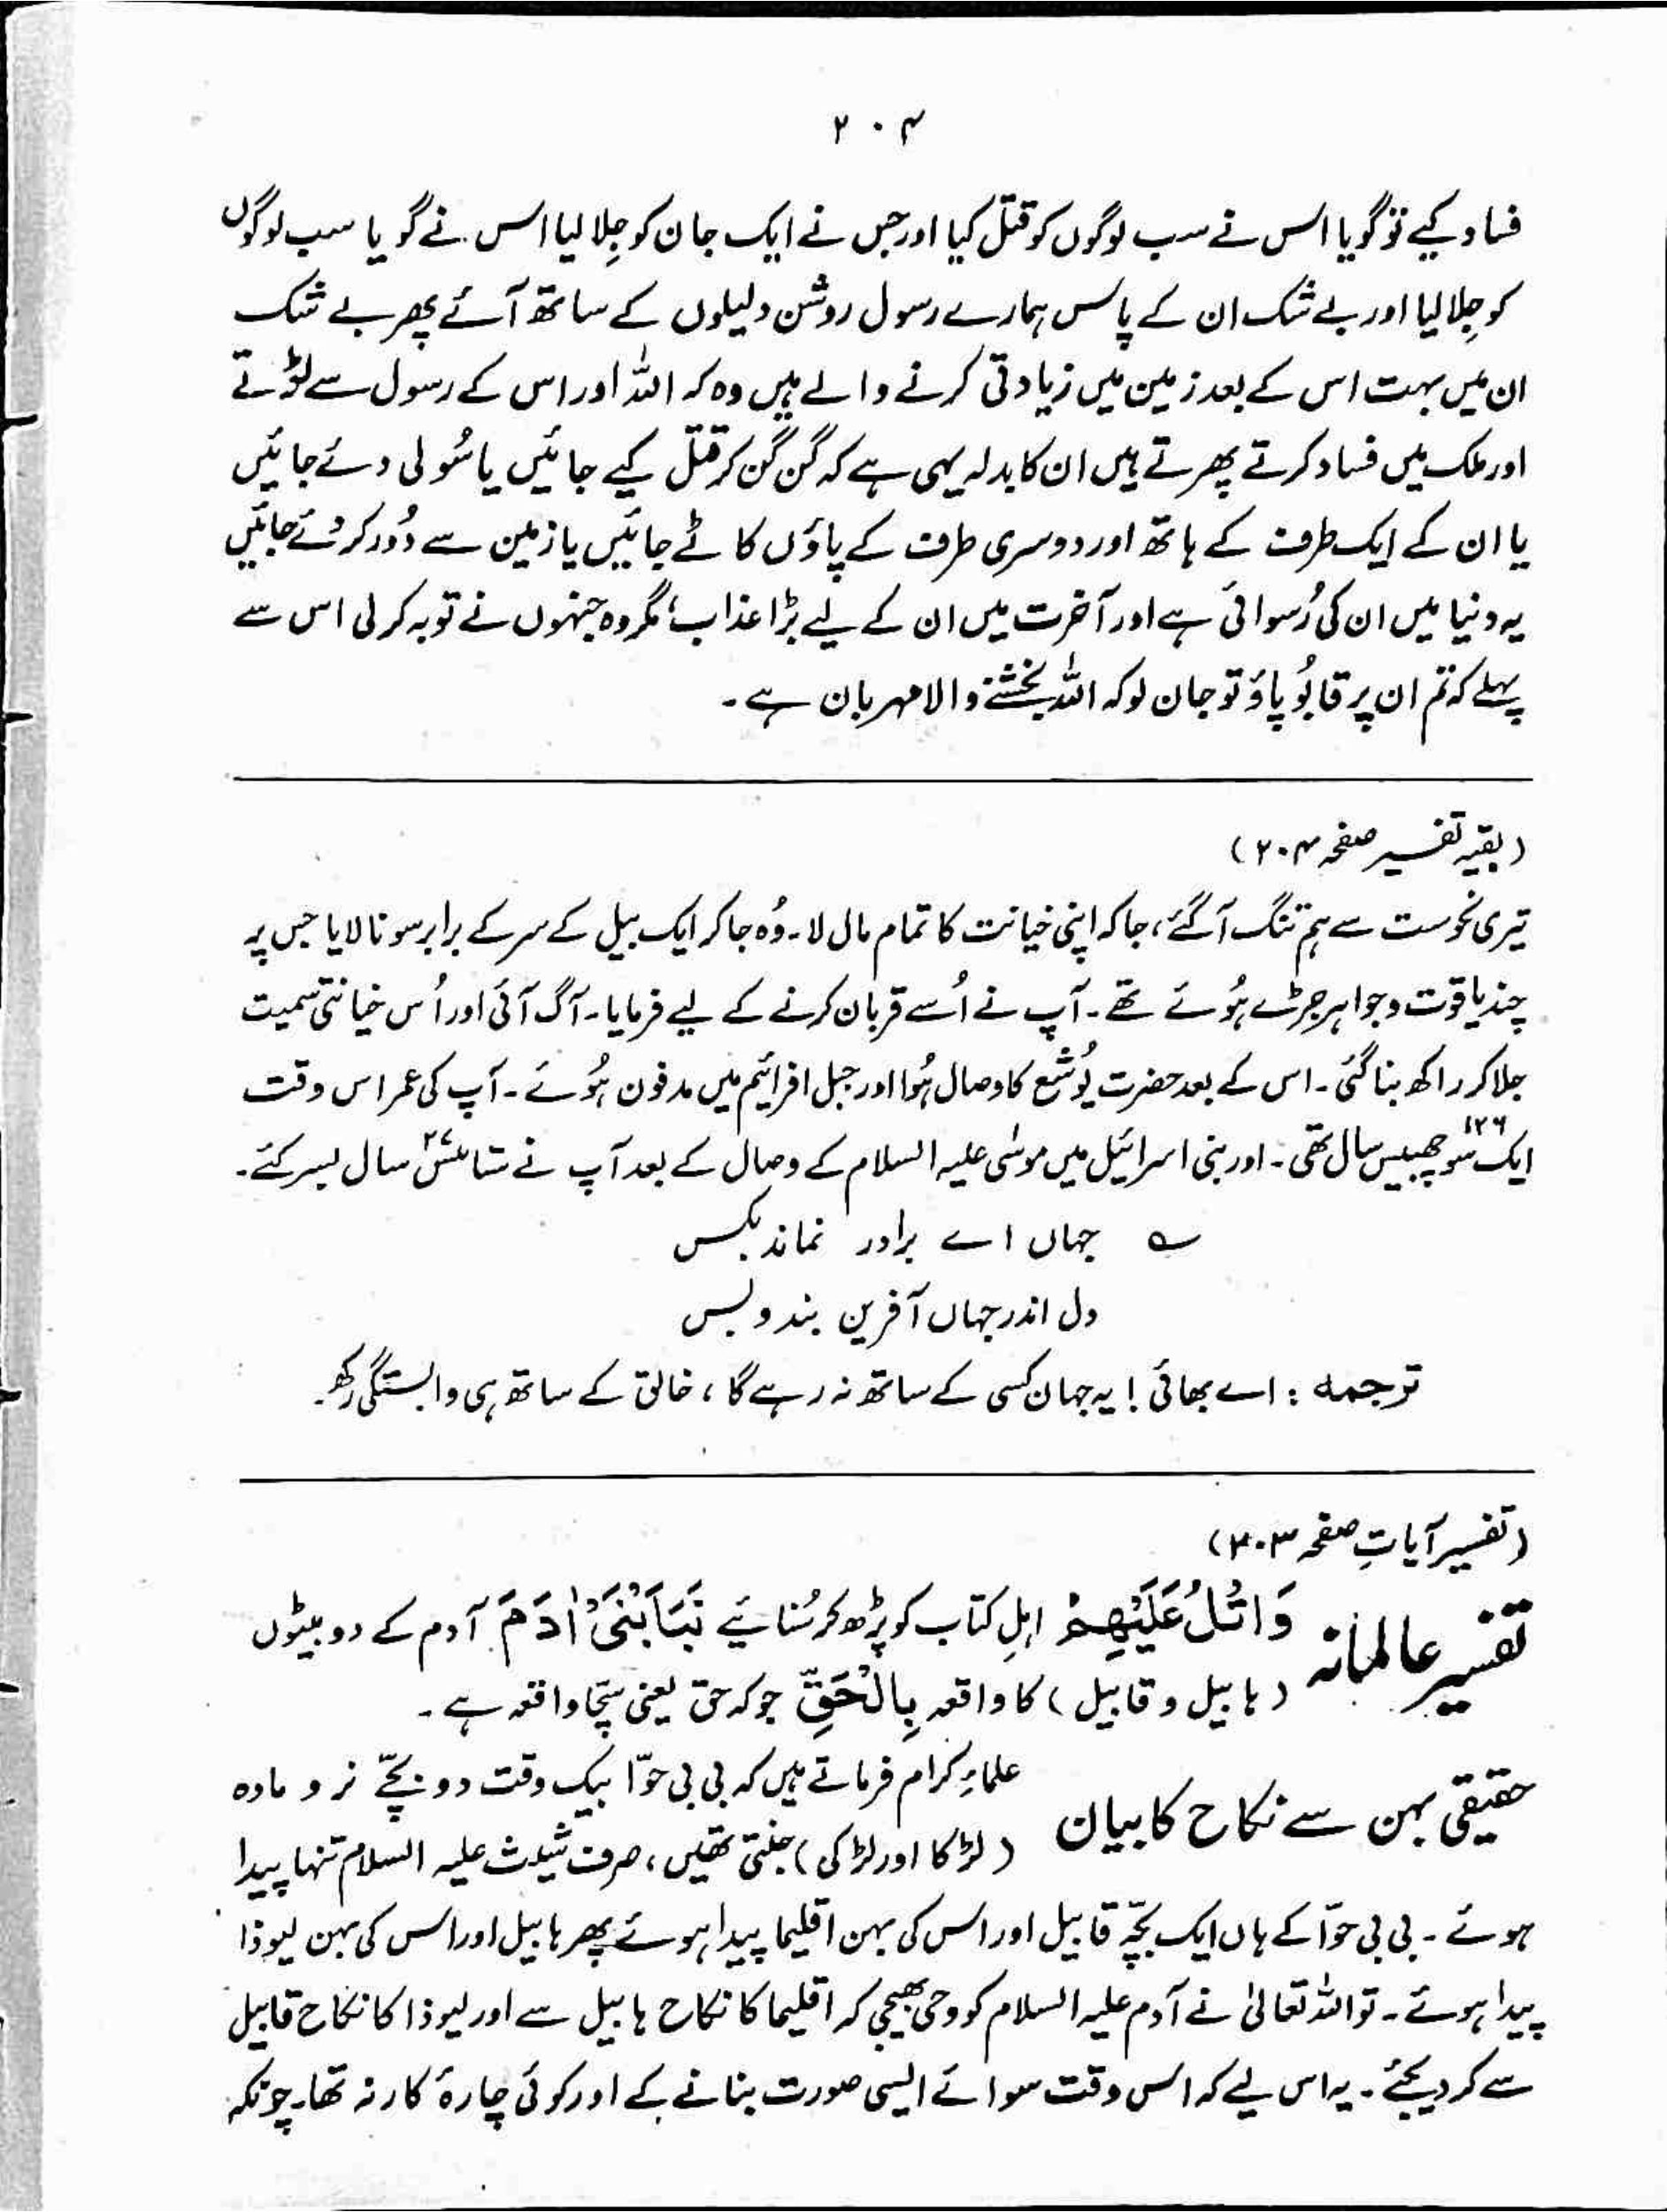 ۲۰۴
فساد کیے تو گویا اس نے سب لوگوں کو قتل کیا اور جس نے ایک جان کو جِلا لیا اس نے گویا سب لوگوں
کو جِلا لیا اور بے شک ان کے پاس ہمارے رسول روشن دلیلوں کے ساتھ آئے پھر بے شک
ان میں بہت اس کے بعد زمین میں زیادتی کرنے والے ہیں وہ کہ اللہ اور اس کے رسول سے لڑتے
اور ملک میں فساد کرتے پھرتے ہیں ان کا بدلہ یہی ہے کہ گن گن کر قتل کیے جائیں یا سُولی دئے جائیں
یا ان کے ایک طرف کے ہاتھ اور دوسری طرف کے پاؤں کاٹے جائیں یا زمین سے دُور کر دئے جائیں
یہ دنیا میں ان کی رُسوائی ہے اور آخرت میں ان کے لیے بڑا عذاب، مگر وہ جنہوں نے توبہ کر لی اس سے
پہلے کہ تم ان پر قابُو پاؤ تو جان لو کہ اللہ بخشنے والا مہربان ہے۔
(بقیہ تفسیر صفحہ ۲۰۴)
تیری نحوست سے ہم تنگ آگئے، جا کہ اپنی خیانت کا تمام مال لا۔ وُہ جاکر ایک بیل کے سر کے برابر سونا لایا جس پر
چند یاقوت و جواہر جڑے ہُوئے تھے۔ آپ نے اُسے قربان کرنے کے لیے فرمایا۔ آگ آئی اور اُس خیانتی سمیت
جلا کر راکھ بنا گئی۔ اس کے بعد حضرت یُوشع کا وصال ہُوا اور جبل افرائیم میں مدفون ہُوئے۔ آپ کی عمر اس وقت
ایک سو چھبیس ۱۲۶ سال تھی۔ اور بنی اسرائیل میں موسٰی علیہ السلام کے وصال کے بعد آپ نے ستائیس ۲۷ سال بسر کئے۔
؎ جہاں اے برادر نماند بکس
دل اندر جہاں آفرین بند و بس
ترجمہ : اے بھائی ! یہ جہان کسی کے ساتھ نہ رہے گا، خالق کے ساتھ ہی وابستگی رکھ۔
(تفسیر آیاتِ صفحہ ۳۰۳)
تفسیر عالمانہ وَاتْلُ عَلَيْهِمْ اہلِ کتاب کو پڑھ کر سُنائیے نَبَاَ ابْنَیْ اٰدَمَ آدم کے دو بیٹوں
(ہابیل و قابیل) کا واقعہ بِالْحَقِّ جو کہ حق یعنی سچّا واقعہ ہے۔
حقیقی بہن سے نکاح کا بیان علماءِ کرام فرماتے ہیں کہ بی بی حوّا بیک وقت دو بچّے نر و مادہ
(لڑکا اور لڑکی) جنتی تھیں، صرف شیث علیہ السلام تنہا پیدا
ہوئے۔ بی بی حوّا کے ہاں ایک بچّہ قابیل اور اس کی بہن اقلیما پیدا ہوئے پھر ہابیل اور اس کی بہن لیوذا
پیدا ہوئے۔ تو اللہ تعالیٰ نے آدم علیہ السلام کو وحی بھیجی کہ اقلیما کا نکاح ہابیل سے اور لیوذا کا نکاح قابیل
سے کر دیجئے۔ یہ اس لیے کہ اس وقت سوائے ایسی صورت بنانے کے اور کوئی چارۂ کار نہ تھا۔ چونکہ